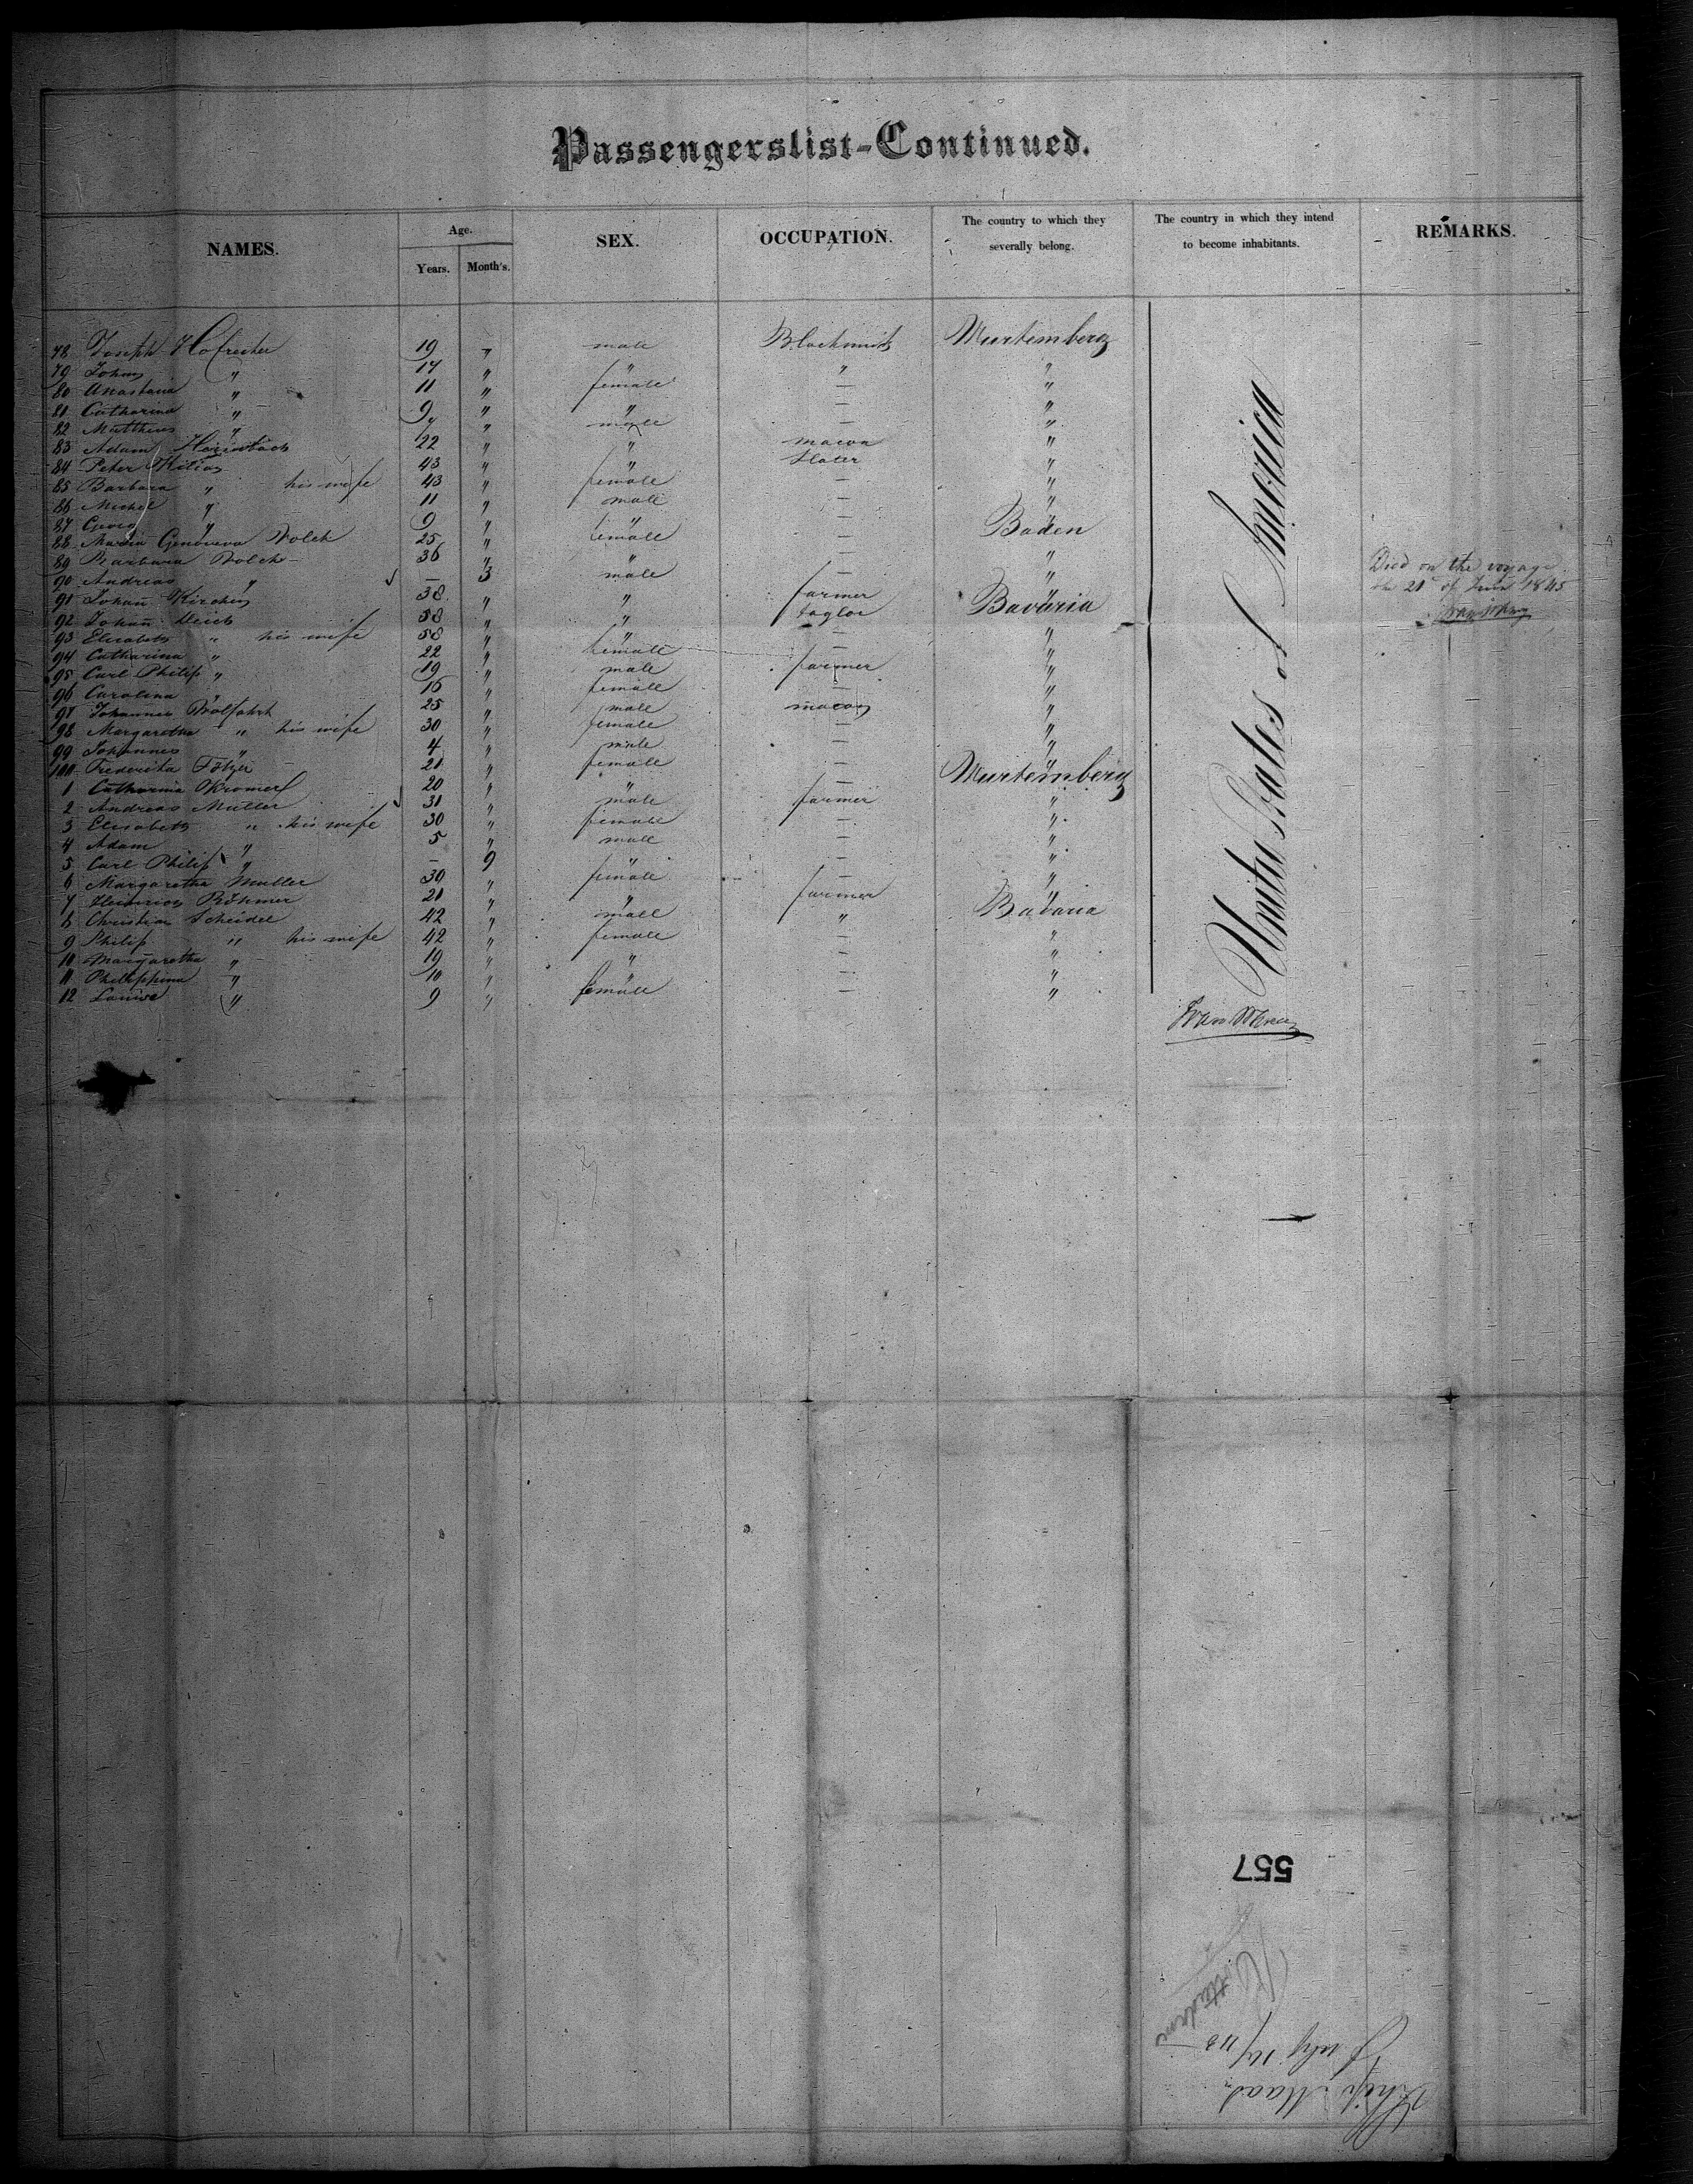 Passengerslist-Continued.
NAMES. Age. Years. Month's. SEX. OCCUPATION. The country to which they severally belong. The country in which they intend to become inhabitants. REMARKS.
78 Joseph Hofrecher 19 " male Blacksmith Wurtemberg
79 Johan " 17 " " " "
80 Anastasia " 11 " female — "
81 Catharina " 9 " " — "
82 Matthias " " " male — "
83 Adam 22 " " macon "
84 Peter Kilian 43 " " Slater "
85 Barbara " his wife 43 " female — "
86 Michel " 11 " male — "
87 Georg " 9 " " — "
88 Maria Genoveva Volck 25 " female — Baden
89 Barbara Volck 36 " " — "
90 Andreas " — 3 male — " Died on the voyage the 21 of June 1845
91 Johan Kirchen 38 " " farmer "
92 Johan 58 " " taylor Bavaria
93 Elisabeth " his wife 58 " " — "
94 Catharina " 22 " female — "
95 Carl Philip " 19 " male farmer "
96 Carolina " 16 " female — "
97 Johannes Wolfahrt 25 " male macon "
98 Margaretha " his wife 30 " female — "
99 Johannes " 4 " male — "
100 Frederika 21 " female — "
1 Catharina Kromer 20 " " — Wurtemberg
2 Andreas Muller 31 " male farmer "
3 Elisabeth " his wife 30 " female — "
4 Adam " 5 " male — "
5 Carl Philip " — 9 " — "
6 Margaretha Muller 30 " female — "
7 Heinrich Böhmer 21 " " farmer "
8 Christian Scheidel 42 " male " Bavaria
9 Philip " his wife 42 " female — "
10 Margaretha " 19 " " — "
11 Philippina " 10 " " — "
12 Louise " 9 " female — "
United States of America
557
Ship Maas
July 14/45